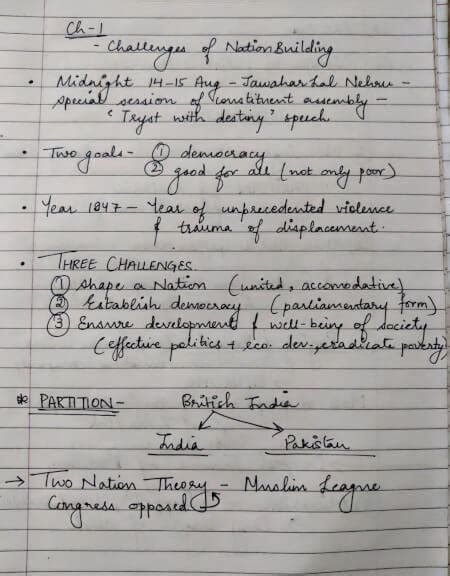 Ch-1
- Challenges of Nation Building
• Midnight 14-15 Aug - Jawahar Lal Nehru -
special session of constituent assembly -
'Tryst with destiny' speech
• Two goals- ① democracy
② good for all (not only poor)
• Year 1947 - Year of unprecedented violence
& trauma of displacement.
• THREE CHALLENGES
① Shape a Nation (united, accomodative)
② Establish democracy (parliamentary form)
③ Ensure development & well-being of society
(effective politics + eco. dev., eradicate poverty)
* PARTITION- British India
India Pakistan
→ Two Nation Theory - Muslim League
Congress opposed